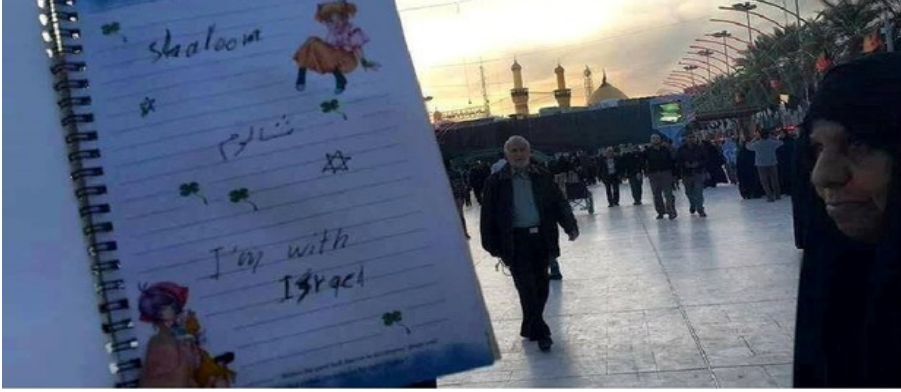 shaloom
شالوم
I'm with
Israel